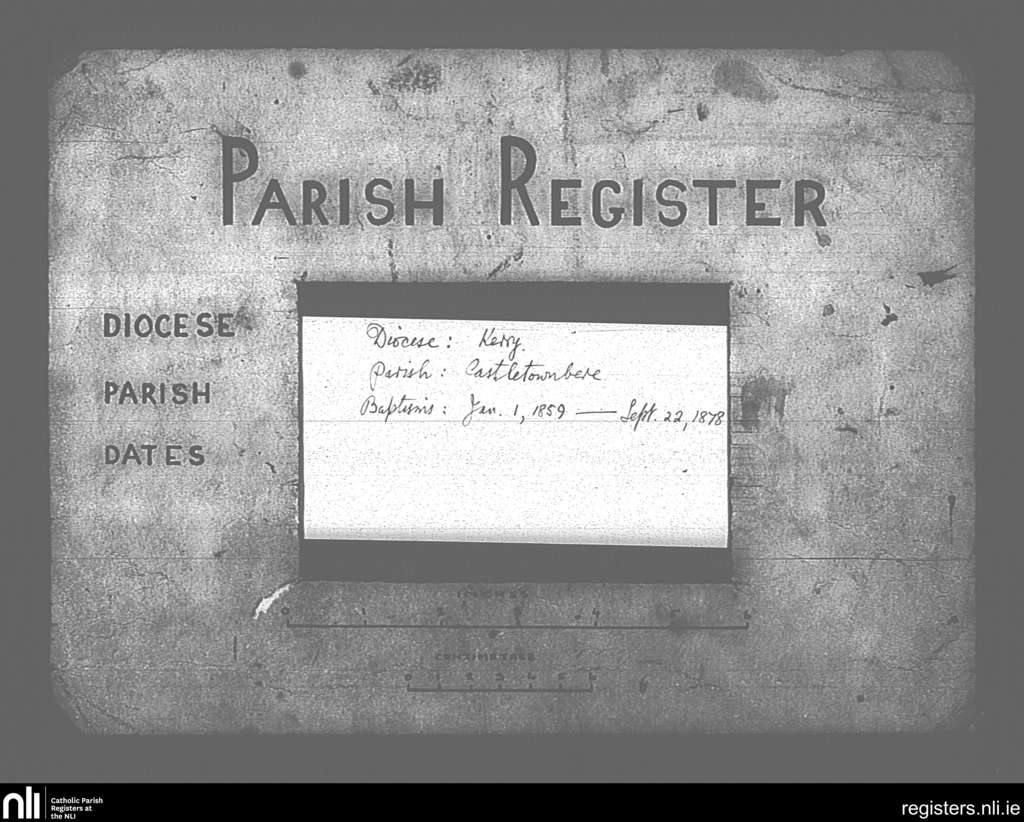 PARISH REGISTER
DIOCESE
PARISH
DATES
Diocese: Kerry.
Parish: Castletownbere
Baptisms: Jan. 1, 1859 — Sept. 22, 1878
INCHES
0 1 2 3 4 5 6
CENTIMETRES
0 1 2 3 4 5 6
nli
Catholic Parish
Registers at
the NLI
registers.nli.ie